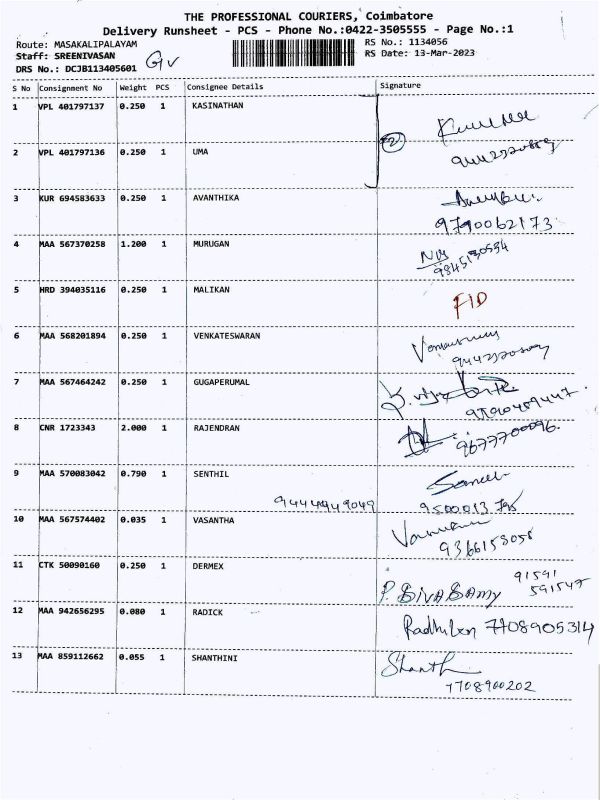 THE PROFESSIONAL COURIERS, Coimbatore
Delivery Runsheet - PCS - Phone No.:0422-3505555 - Page No.:1
Route: MASAKALIPALAYAM
RS No.: 1134056
Staff: SREENIVASAN
RS Date: 13-Mar-2023
DRS No.: DCJB113405601
S No Consignment No Weight PCS Consignee Details Signature
1 VPL 401797137 0.250 1 KASINATHAN
2 VPL 401797136 0.250 1 UMA
3 KUR 694583633 0.250 1 AVANTHIKA
9790062173
4 MAA 567370258 1.200 1 MURUGAN
5 HRD 394035116 0.250 1 MALIKAN FID
6 MAA 568201894 0.250 1 VENKATESWARAN
7 MAA 567464242 0.250 1 GUGAPERUMAL
8 CNR 1723343 2.000 1 RAJENDRAN
9677700096.
9 MAA 570083042 0.790 1 SENTHIL
9444949049
10 MAA 567574402 0.035 1 VASANTHA
9366153058
11 CTK 50090160 0.250 1 DERMEX
91591
591547
P. SIVA SAMY
12 MAA 942656295 0.080 1 RADICK
7708905314
13 MAA 859112662 0.055 1 SHANTHINI
Shanth
7708900202